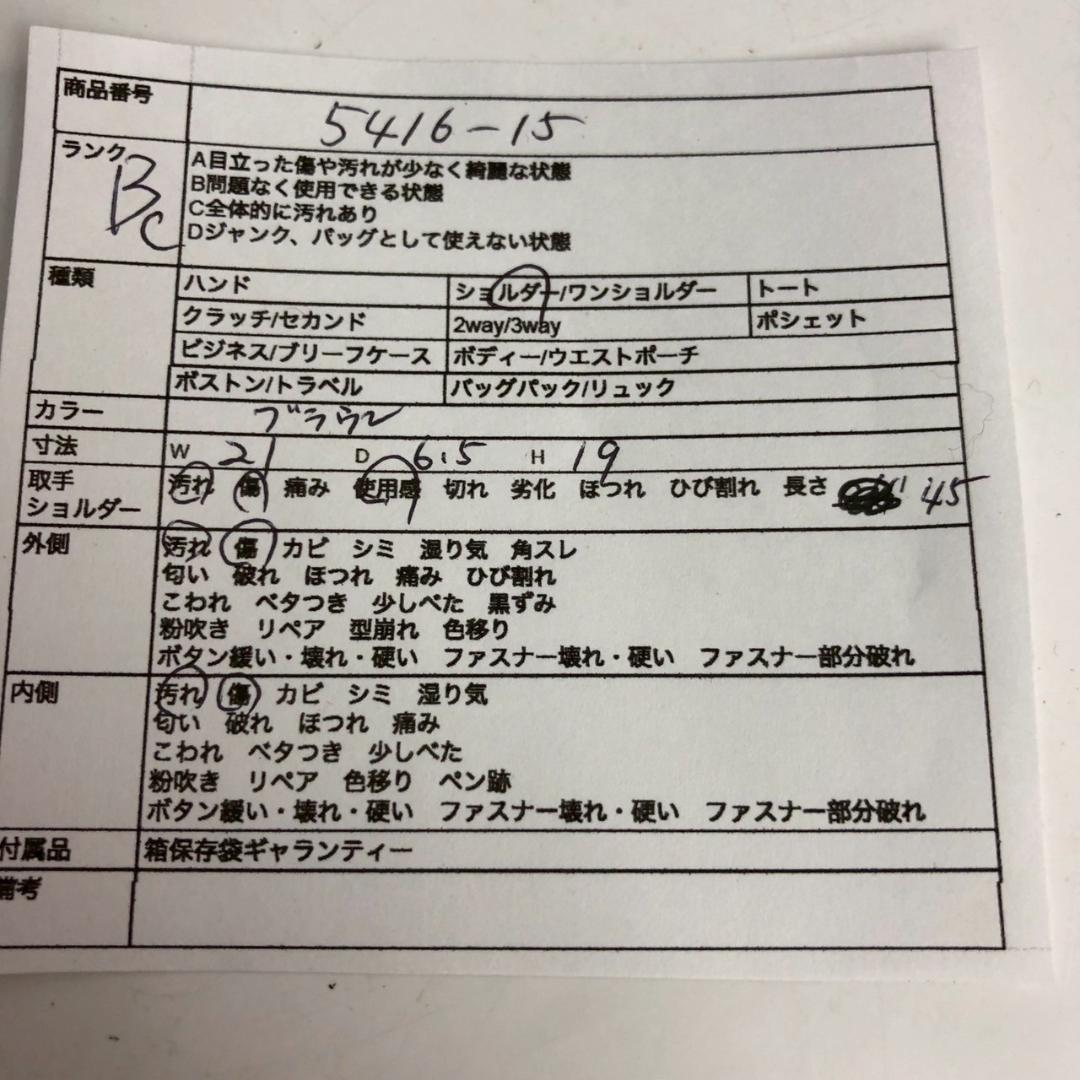 商品番号 5416-15
ランク BC
A目立った傷や汚れが少なく綺麗な状態
B問題なく使用できる状態
C全体的に汚れあり
Dジャンク、バッグとして使えない状態
種類 ハンド ショルダー/ワンショルダー トート
クラッチ/セカンド 2way/3way ポシェット
ビジネス/ブリーフケース ボディー/ウエストポーチ
ボストン/トラベル バッグパック/リュック
カラー ブラウン
寸法 W 21 D 6.5 H 19
取手 汚れ 傷 痛み 使用感 切れ 劣化 ほつれ ひび割れ 長さ 45
ショルダー
外側 汚れ 傷 カビ シミ 湿り気 角スレ
匂い 破れ ほつれ 痛み ひび割れ
こわれ ベタつき 少しべた 黒ずみ
粉吹き リペア 型崩れ 色移り
ボタン緩い・壊れ・硬い ファスナー壊れ・硬い ファスナー部分破れ
内側 汚れ 傷 カビ シミ 湿り気
匂い 破れ ほつれ 痛み
こわれ ベタつき 少しべた
粉吹き リペア 色移り ペン跡
ボタン緩い・壊れ・硬い ファスナー壊れ・硬い ファスナー部分破れ
付属品 箱保存袋ギャランティー
備考